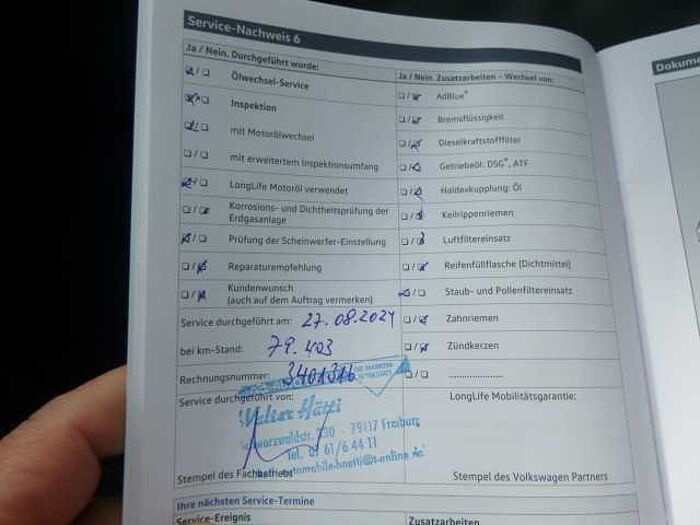 Service-Nachweis 6
Ja / Nein. Durchgeführt wurde:
Ölwechsel-Service
Inspektion
mit Motorölwechsel
mit erweitertem Inspektionsumfang
LongLife Motoröl verwendet
Korrosions- und Dichtheitsprüfung der
Erdgasanlage
Prüfung der Scheinwerfer-Einstellung
Reparaturempfehlung
Kundenwunsch
(auch auf dem Auftrag vermerken)
Service durchgeführt am: 27.08.2024
bei km-Stand: 79.403
Rechnungsnummer: 3401316
Service durchgeführt von:
Walter Hätti
79117 Freiburg
Tel. 0761/6 44 11
Stempel des Fachbetriebs
Ja / Nein. Zusatzarbeiten – Wechsel von:
AdBlue®
Bremsflüssigkeit
Dieselkraftstofffilter
Getriebeöl: DSG®, ATF
Haldexkupplung: Öl
Keilrippenriemen
Luftfiltereinsatz
Reifenfüllflasche (Dichtmittel)
Staub- und Pollenfiltereinsatz
Zahnriemen
Zündkerzen
LongLife Mobilitätsgarantie:
Stempel des Volkswagen Partners
Ihre nächsten Service-Termine
Service-Ereignis
Zusatzarbeiten
Dokume